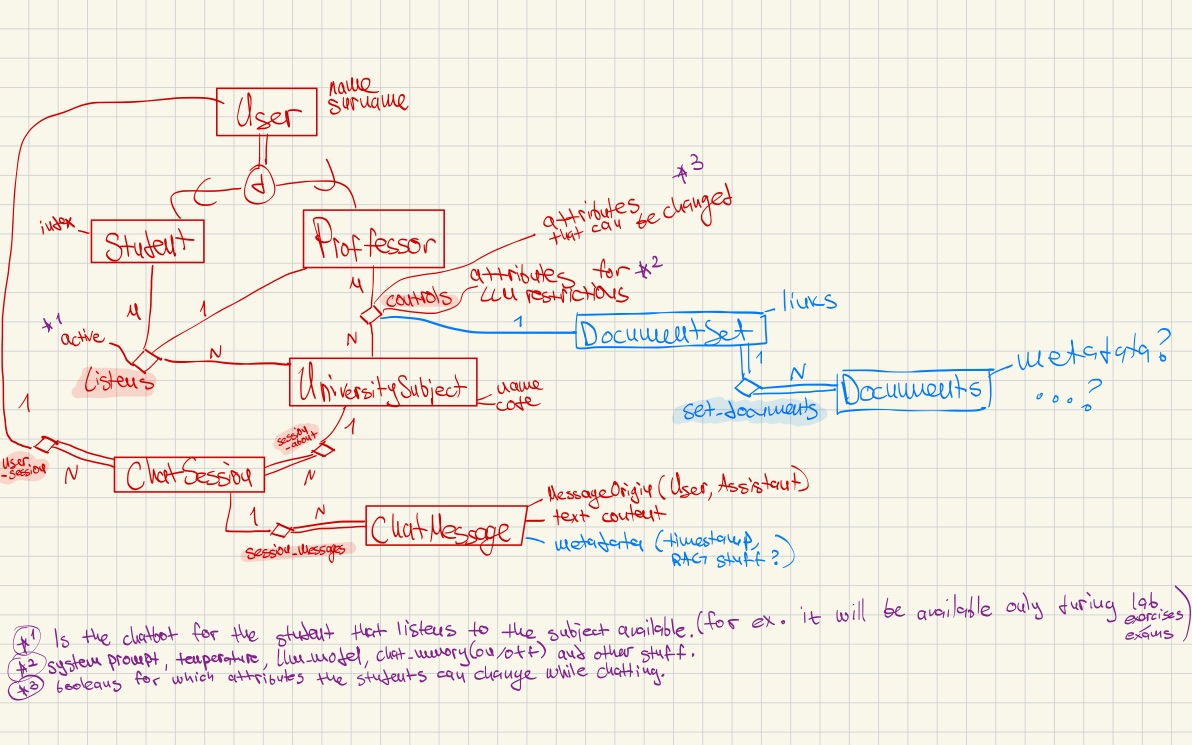 name
surname
User
d
*3
index
Student
Proffessor
attributes
that can be changed
attributes for *2
LLM restrictions
controls
links
M
1
M
*1
active
N
N
1
DocumentSet
1
metadata?
...?
N
Documents
set_documents
listens
UniversitySubject
name
code
1
1
session
_about
user
_session
N
ChatSession
N
MessageOrigin (User, Assistant)
text content
metadata (timestamp,
RAG stuff?)
1
N
ChatMessage
session_messages
*1 Is the chatbot for the student that listens to the subject available. (for ex. it will be available only during lab
exercises
exams)
*2 system prompt, temperature, llm_model, chat_memory (on/off) and other stuff.
*3 booleans for which attributes the students can change while chatting.